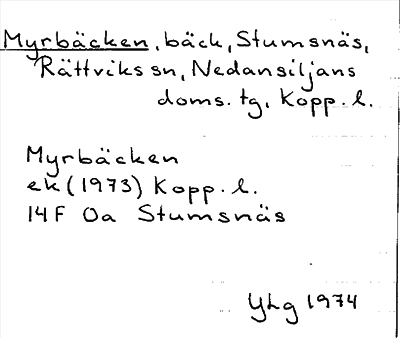 Myrbäcken, bäck, Stumsnäs,
Rättviks sn, Nedansiljans
doms. tg, Kopp. l.
Myrbäcken
ek (1973) Kopp. l.
14F 0a Stumsnäs
YLg 1974